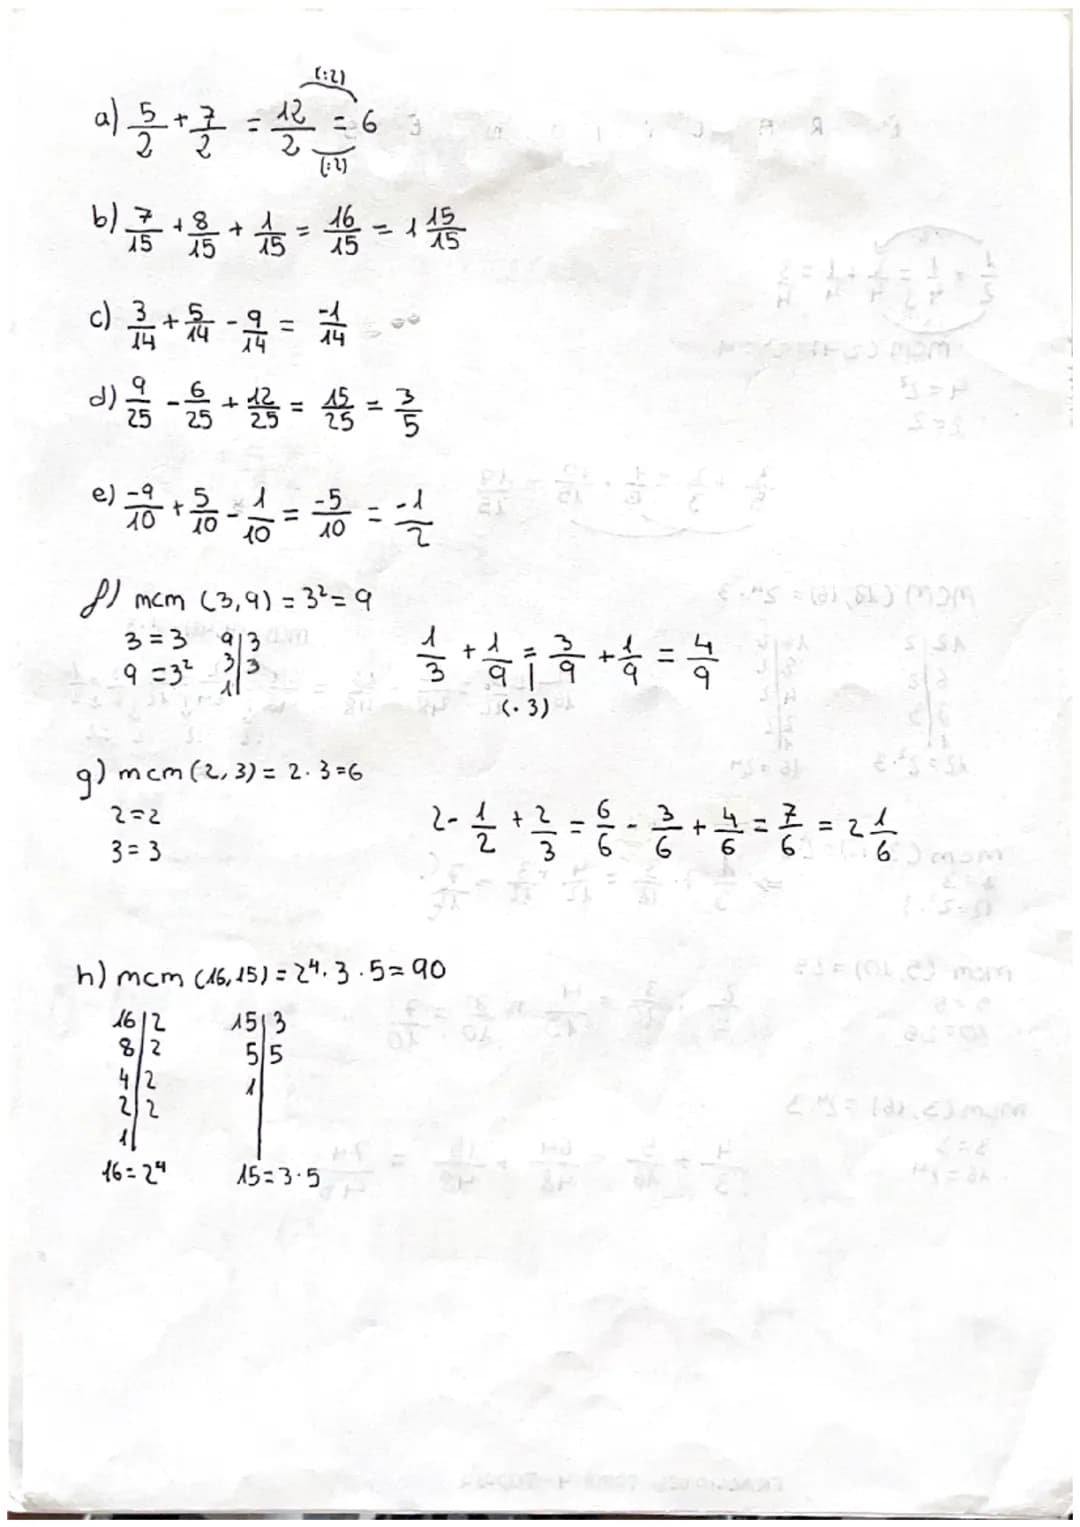 (:2)
a) 5/2 + 7/2 = 12/2 = 6
(:2)
b) 7/15 + 8/15 + 1/15 = 16/15 = 1 15/15
c) 3/14 + 5/14 - 9/14 = -1/14
d) 9/25 - 6/25 + 12/25 = 15/25 = 3/5
e) -9/10 + 5/10 - 1/10 = -5/10 = -1/2
f) mcm (3,9) = 3² = 9
3 = 3 9|3
9 = 3² 3|3
1|
1/3 + 1/9 = 3/9 + 1/9 = 4/9
(·3)
g) mcm (2,3) = 2·3=6
2=2
3=3
2 - 1/2 + 2/3 = 6/6 - 3/6 + 4/6 = 7/6 = 2 1/6
h) mcm (16,15) = 2⁴·3·5= 90
16|2 15|3
8|2 5|5
4|2 1|
2|2
1|
16=2⁴ 15=3·5